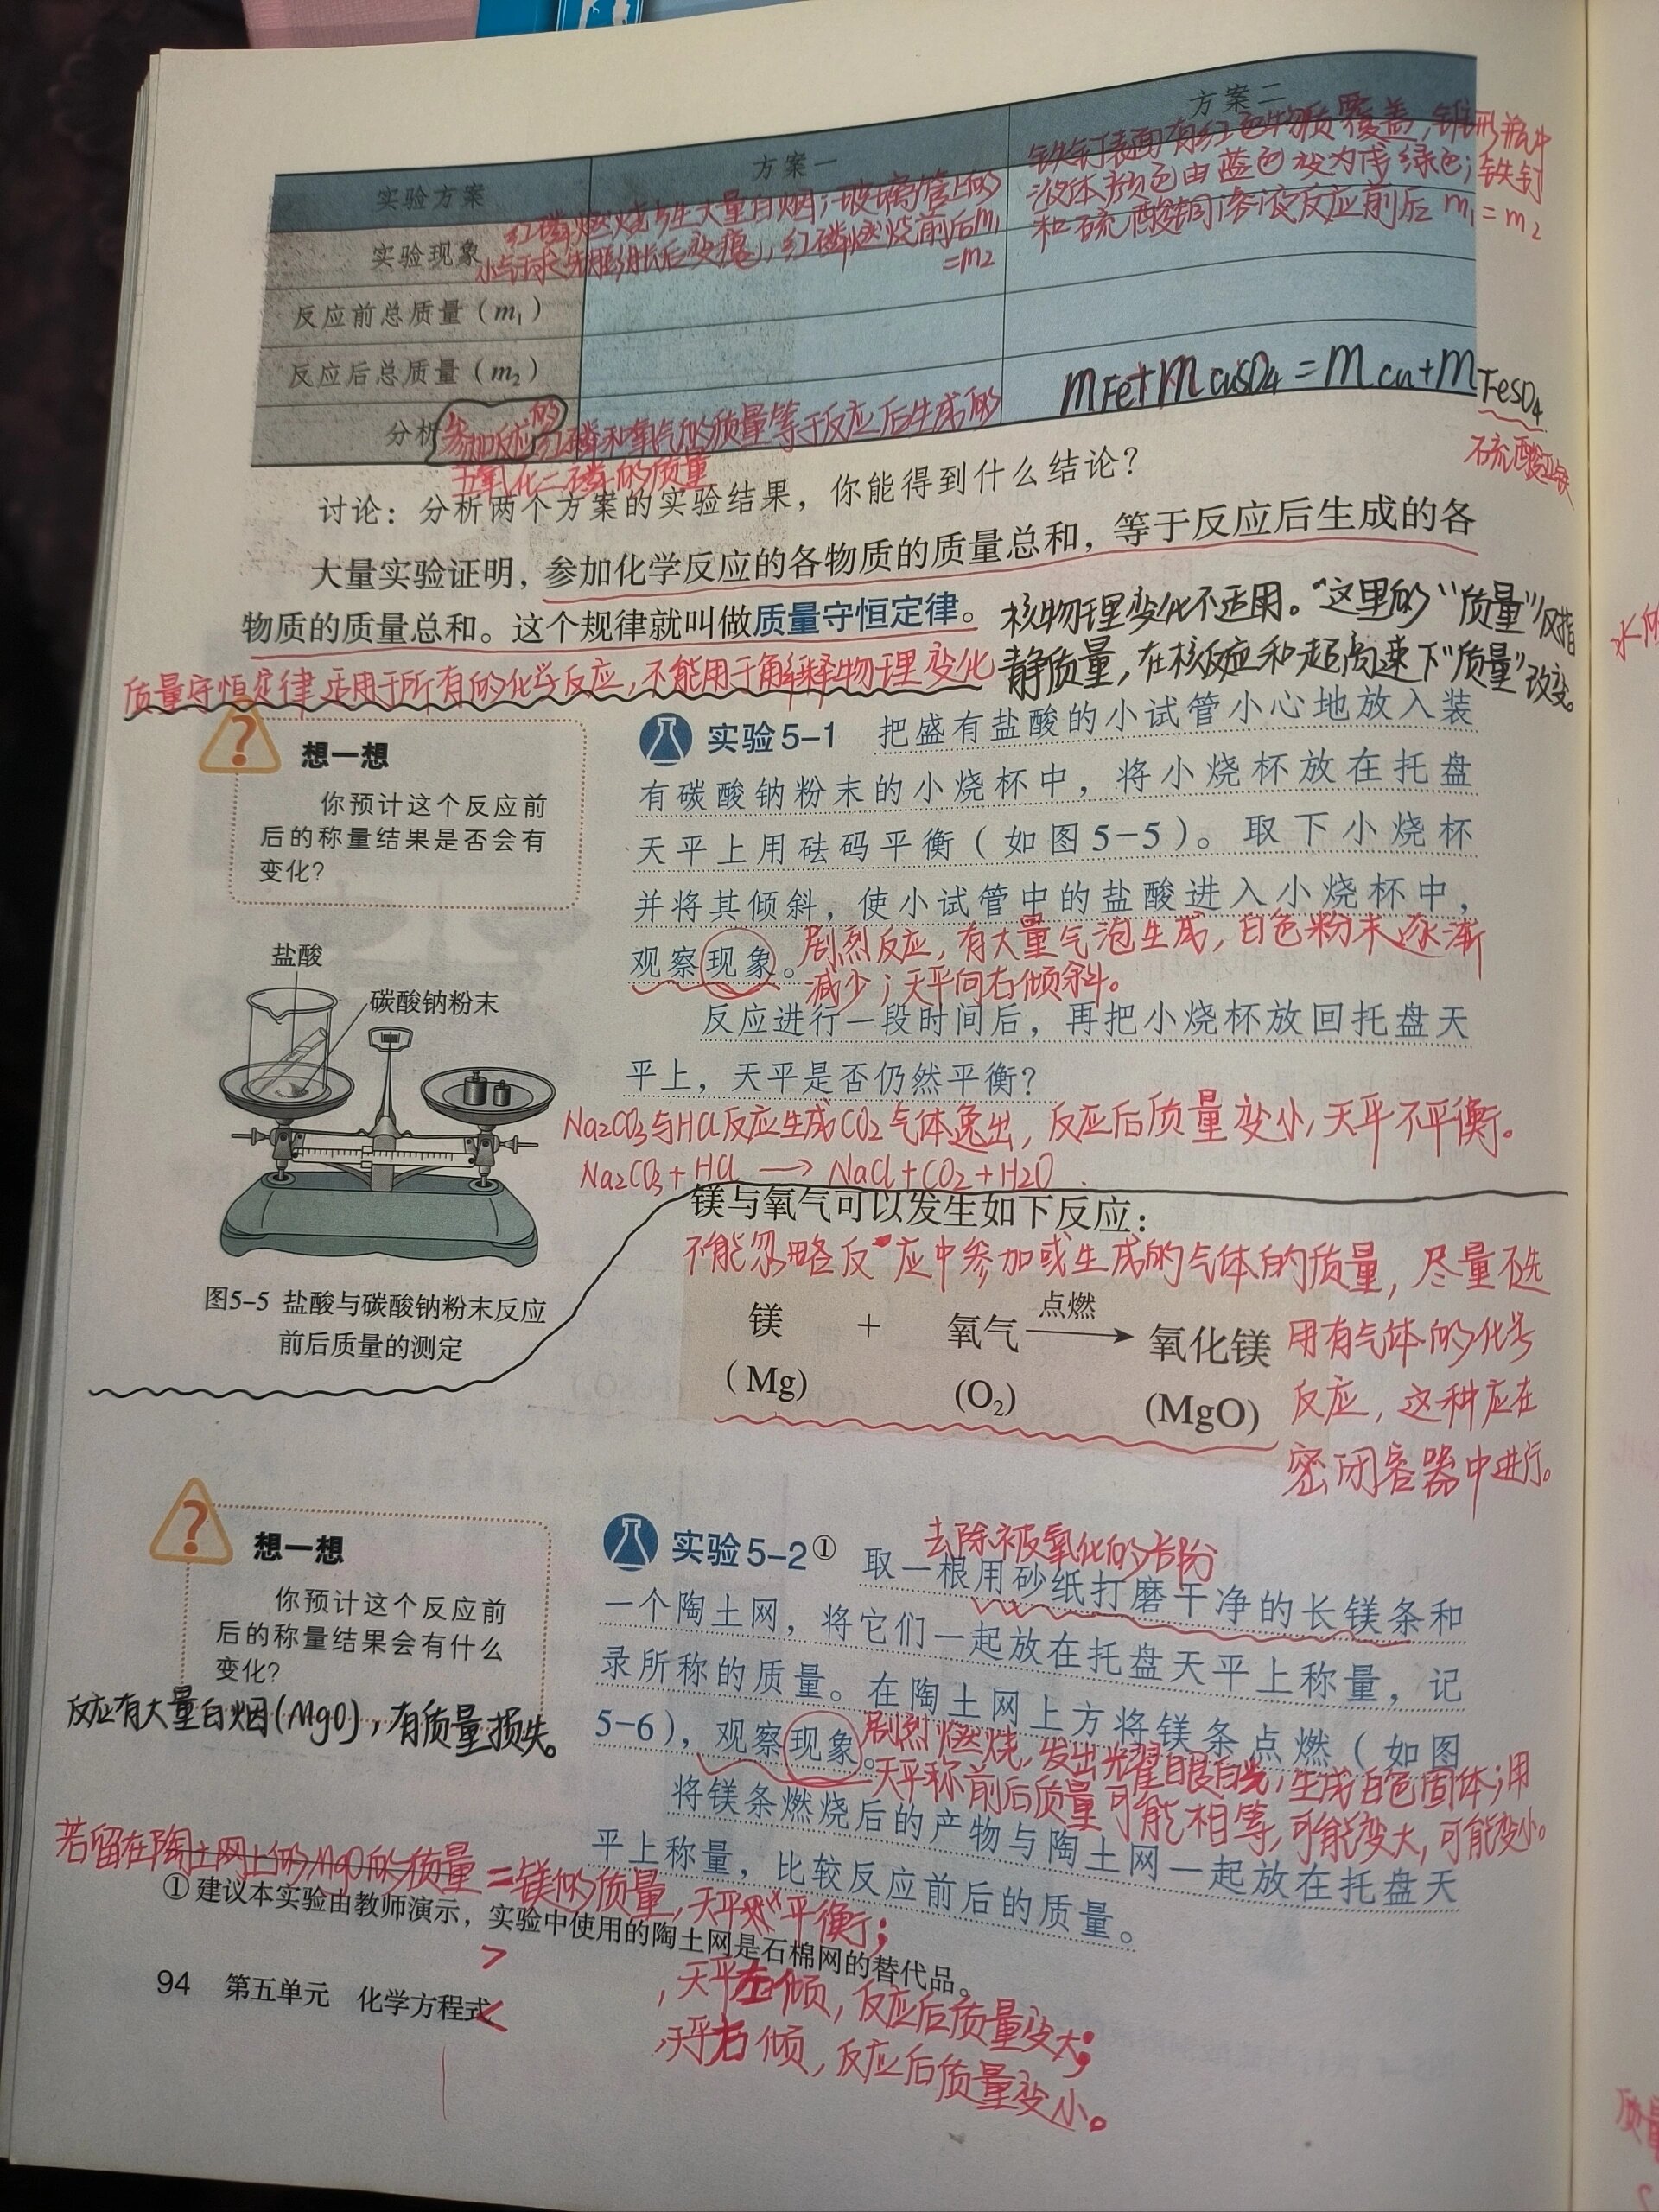 实验方案 方案一 方案二
铁钉表面有红色物质覆盖,锥形瓶中
液体颜色由蓝色变为浅绿色;铁钉
和硫酸铜溶液反应前后 m₁=m₂
实验现象
红磷燃烧产生大量白烟;玻璃管上的
小气球先膨胀后变瘪;红磷燃烧前后m₁
=m₂
反应前总质量(m₁)
反应后总质量(m₂)
mFe+mCuSO₄=mCu+mFeSO₄
硫酸亚铁
分析 参加反应的红磷和氧气的质量等于反应后生成的
五氧化二磷的质量
讨论:分析两个方案的实验结果,你能得到什么结论?
大量实验证明,参加化学反应的各物质的质量总和,等于反应后生成的各
物质的质量总和。这个规律就叫做质量守恒定律。
核物理变化不适用。"这里的"质量"仅指
静质量,在核反应和超高速下"质量"改变。
质量守恒定律适用于所有的化学反应,不能用于解释物理变化
想一想
你预计这个反应前
后的称量结果是否会有
变化?
实验5-1 把盛有盐酸的小试管小心地放入装
有碳酸钠粉末的小烧杯中,将小烧杯放在托盘
天平上用砝码平衡(如图5-5)。取下小烧杯
并将其倾斜,使小试管中的盐酸进入小烧杯中,
观察现象。
剧烈反应,有大量气泡生成,白色粉末逐渐
减少;天平向右倾斜。
反应进行一段时间后,再把小烧杯放回托盘天
平上,天平是否仍然平衡?
Na₂CO₃与HCl反应生成CO₂气体逸出,反应后质量变小,天平不平衡。
Na₂CO₃+HCl→NaCl+CO₂+H₂O
盐酸
碳酸钠粉末
图5-5 盐酸与碳酸钠粉末反应
前后质量的测定
镁与氧气可以发生如下反应:
不能忽略反应中参加或生成的气体的质量,尽量不选
用有气体的化学
反应,这种应在
密闭容器中进行。
镁 + 氧气 点燃→ 氧化镁
(Mg) (O₂) (MgO)
想一想
你预计这个反应前
后的称量结果会有什么
变化?
反应有大量白烟(MgO),有质量损失。
去除被氧化的部份
实验5-2① 取一根用砂纸打磨干净的长镁条和
一个陶土网,将它们一起放在托盘天平上称量,记
录所称的质量。在陶土网上方将镁条点燃(如图
5-6),观察现象。
剧烈燃烧,发出耀眼白光;生成白色固体;用
天平称前后质量可能相等,可能变大,可能变小。
将镁条燃烧后的产物与陶土网一起放在托盘天
平上称量,比较反应前后的质量。
若留在陶土网上的MgO的质量=镁的质量,天平平衡;
> ,天平左倾,反应后质量变大;
< ,天平右倾,反应后质量变小。
①建议本实验由教师演示,实验中使用的陶土网是石棉网的替代品。
94 第五单元 化学方程式
质量